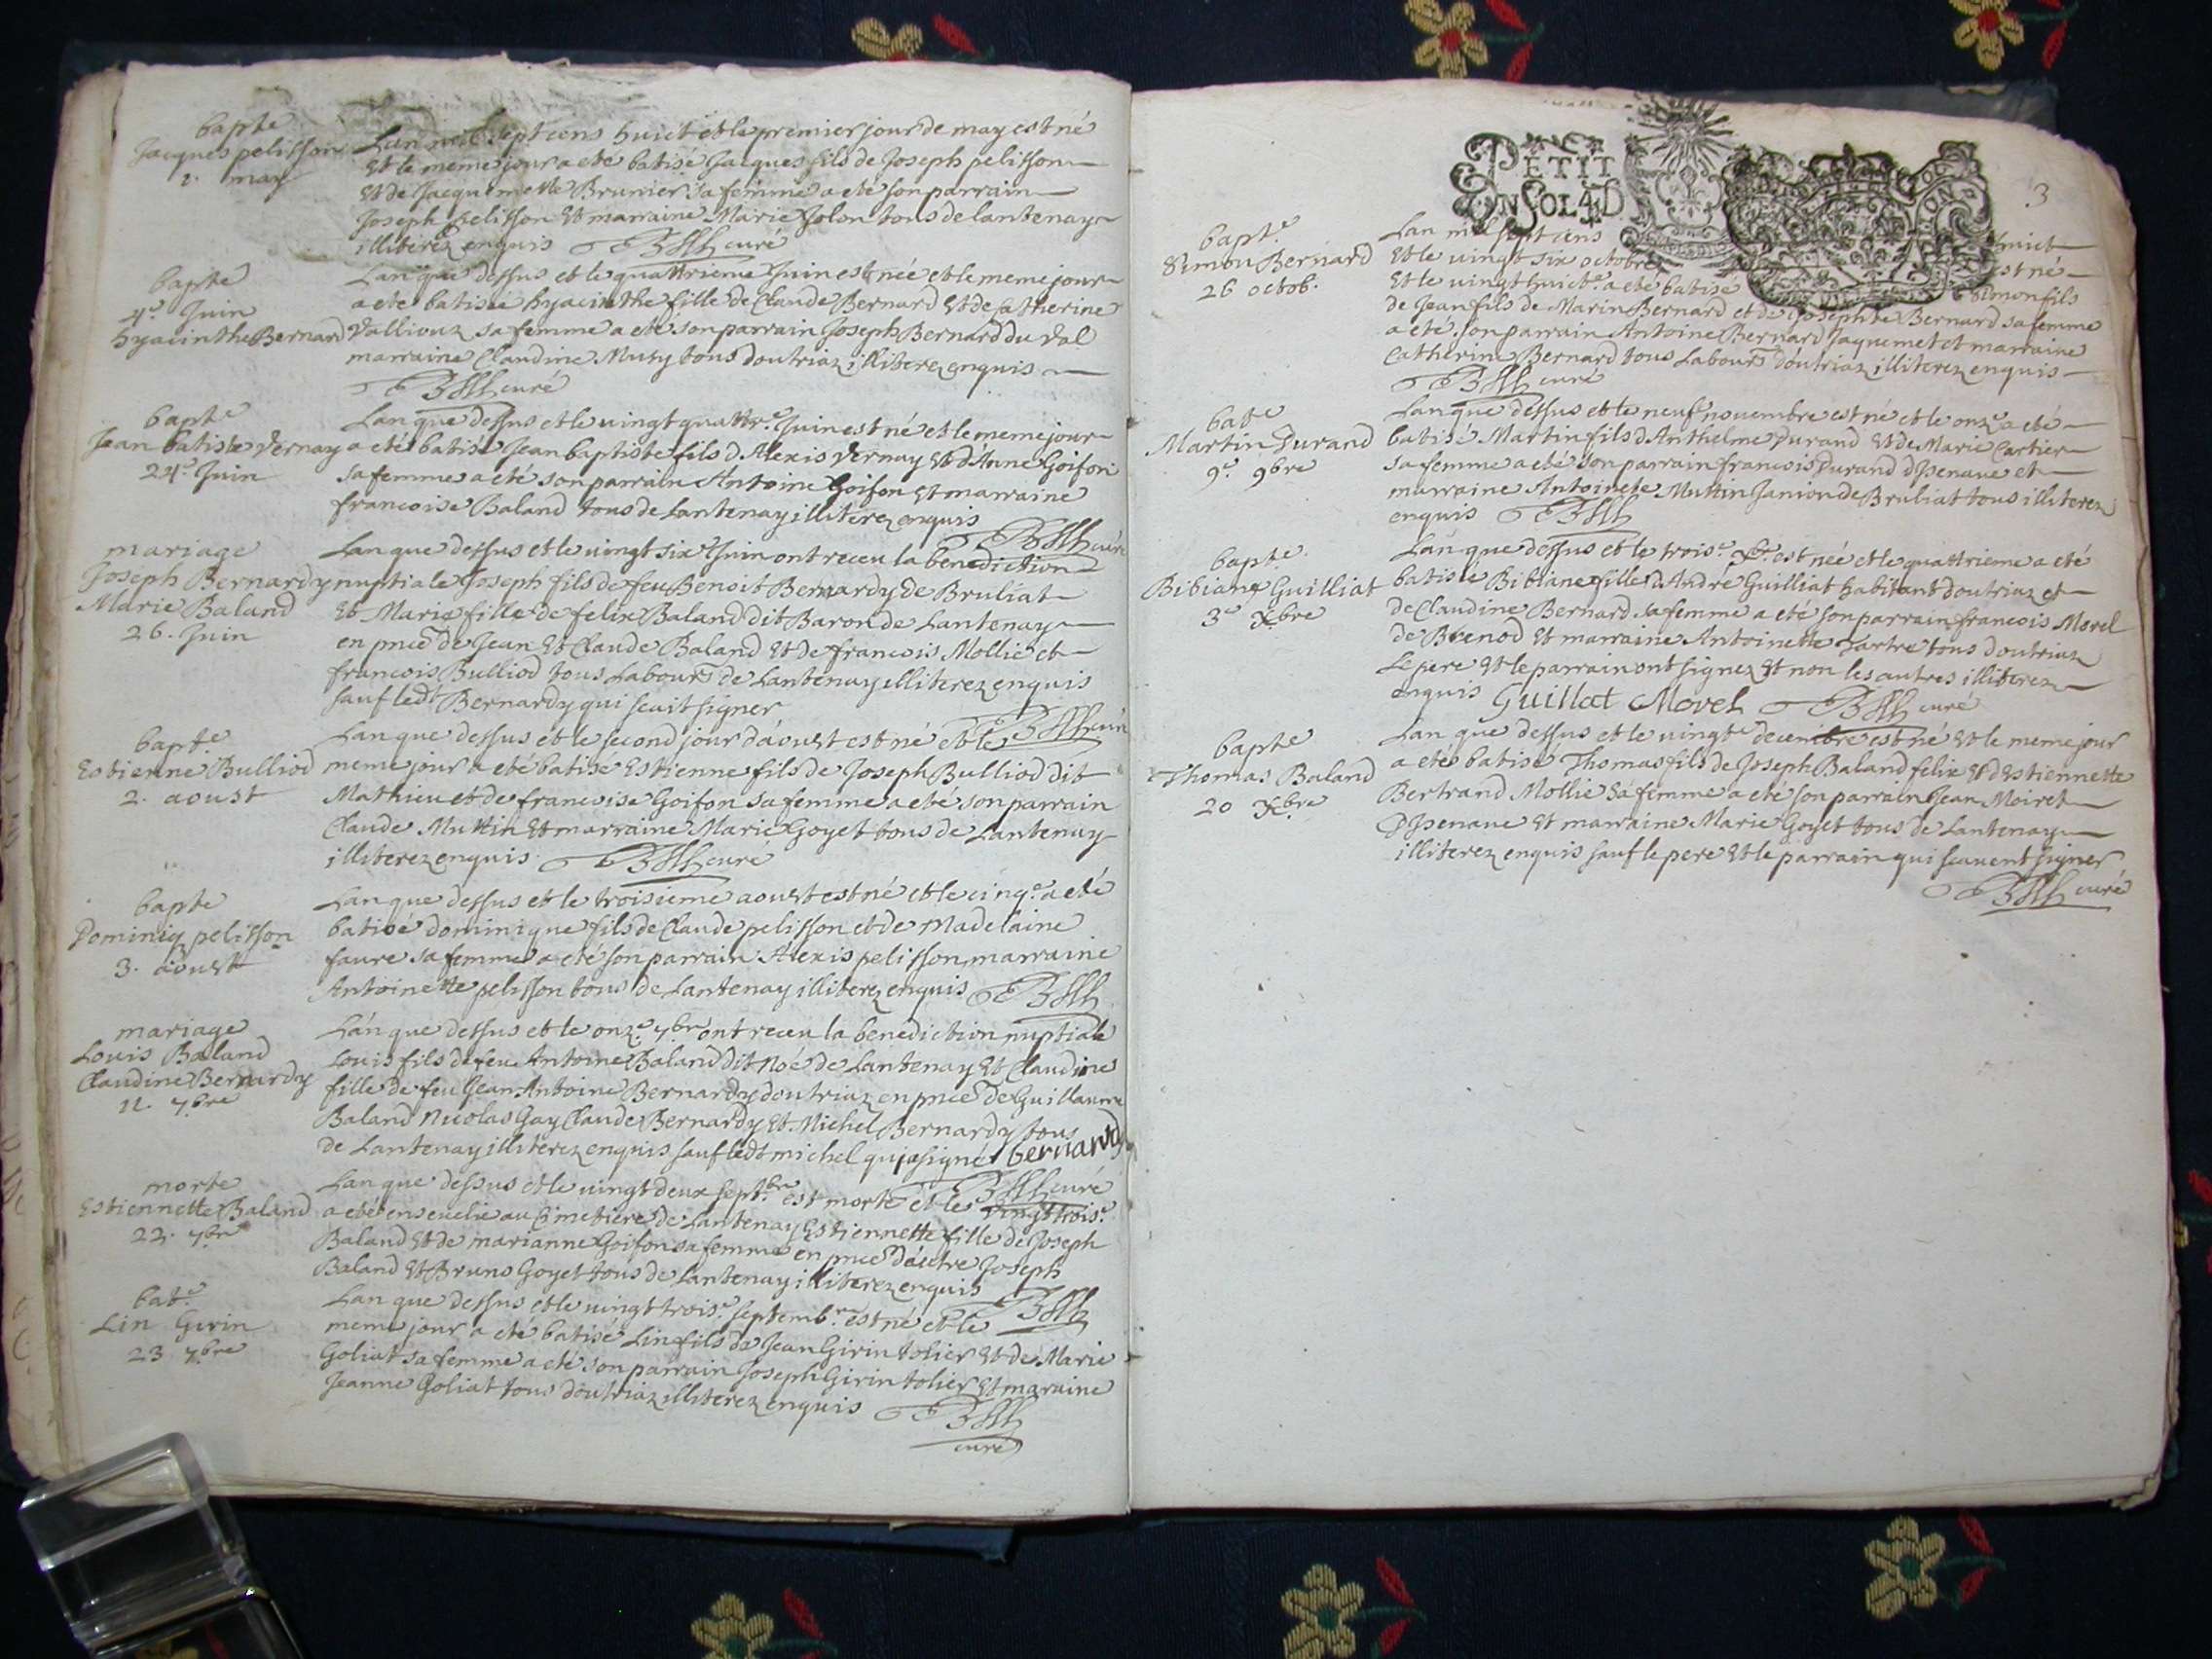 bapte
Jacques pelisson
1. may
Lan mil sept cens huict et le premier jour de may est né
Et le meme jour a eté batisé Jacques fils de Joseph pelisson
Et de Jacquemette Brunier sa femme a eté son parrain
Joseph pelisson Et marraine Marie Jolon tous de lantenay
illiterez enquis curé
bapte
4e Juin
hyacinthe Bernard
Lan que dessus et le quattrieme Juin est née et le meme jour
a eté batisée hyacinthe fille de Claude Bernard Et de Catherine
Valliouz sa femme a eté son parrain Joseph Bernard du Val
marraine Claudine Muty tous doutriaz illiterez enquis
curé
bapte
Jean batiste Vernay
24e Juin
Lan que dessus et le vingt quattre Juin est né et le meme jour
a eté batisé Jean baptiste fils d Alexis Vernay Et d Anne Goifon
sa femme a eté son parrain Antoine Goifon Et marraine
francoise Baland tous de Lantenay illiterez enquis
curé
mariage
Joseph Bernardy
Marie Baland
26. Juin
Lan que dessus et le vingt six Juin ont receu la benediction
nuptiale Joseph fils de feu Benoit Bernardy de Bruliat
Et Marie fille de felix Baland dit Baron de Lantenay
en pnce de Jean Et Claude Baland Et de francois Mollie et
francois Bulliod tous Labours de Lantenay illiterez enquis
sauf ledt Bernardy qui scait signer
curé
bapte
Estienne Bulliod
2. aoust
Lan que dessus et le second jour daoust est né et le
meme jour a eté batisé Estienne fils de Joseph Bulliod dit
Mathieu et de francoise Goifon sa femme a eté son parrain
Claude Muttin Et marraine Marie Goyet tous de Lantenay
illiterez enquis curé
bapte
Dominiq pelisson
3. aoust
Lan que dessus et le troisieme aoust est né et le cinqe a eté
batisé dominique fils de Claude pelisson et de Madelaine
faure sa femme a eté son parrain Alexis pelisson marraine
Antoinette pelisson tous de Lantenay illiterez enquis
mariage
Louis Baland
Claudine Bernardy
11. 7bre
Lan que dessus et le onze 7bre ont receu la benediction nuptiale
Louis fils de feu Antoine Baland dit Noé de Lantenay Et Claudine
fille de feu Jean Antoine Bernardy doutriaz en pnce de Guillaume
Baland Nicolas Gay Claude Bernardy Et Michel Bernardy tous
de Lantenay illiterez enquis sauf ledt michel qui a signé bernardy
curé
morte
Estiennette Baland
22. 7bre
Lan que dessus et le vingt deux septbre est morte et le vingt troise
a eté ensevelie au Cimetiere de Lantenay Estiennette fille de Joseph
Baland Et de marianne Goifon sa femme en pnce dautre Joseph
Baland Et Bruno Goyet tous de Lantenay illiterez enquis
bate
Lin Girin
23 7bre
Lan que dessus et le vingt troise septembre est né et le
meme jour a eté batisé Lin fils de Jean Girin tolier Et de Marie
Goliat sa femme a eté son parrain Joseph Girin tolier Et maraine
Jeanne Goliat tous doutriaz illiterez enquis
curé
PETIT
IN FOL 4 D
3
bapte
Simon Bernard
26 octob.
Lan mil sept cens huict
Et le vingt six octobre est né
Et le vingt huicte a eté batisé Simon fils
de Jean fils de Marin Bernard et de Josephte Bernard sa femme
a eté son parrain Antoine Bernard Jaquemet et marraine
Catherine Bernard tous Labours doutriaz illiterez enquis
curé
bate
Martin Durand
9e 9bre
Lan que dessus et le neuf novembre est né et le onze a eté
batisé Martin fils d Anthelme Durand Et de Marie Cartier
sa femme a eté son parrain francois Durand dIzenave et
marraine Antoinete Muttin Janion de Bruliat tous illiterez
enquis
bapte
Bibiane Guilliat
3e Xbre
Lan que dessus et le troise Xbre est née et le quattrieme a eté
batisée Bibiane fille d André Guilliat habitant doutriaz et
de Claudine Bernard sa femme a eté son parrain francois Morel
de Brenod Et marraine Antoinette Tartre tous doutriaz
Le pere Et le parrain ont signez Et non les autres illiterez
enquis Guillat Morel curé
bapte
Thomas Baland
20 Xbre
Lan que dessus et le vingte decembre est né Et le meme jour
a eté batisé Thomas fils de Joseph Baland felix Et d Estiennette
Bertrand Mollie sa femme a eté son parrain Jean Moiret
DIzenave Et marraine Marie Goyet tous de Lantenay
illiterez enquis sauf le pere Et le parrain qui scavent signer
curé